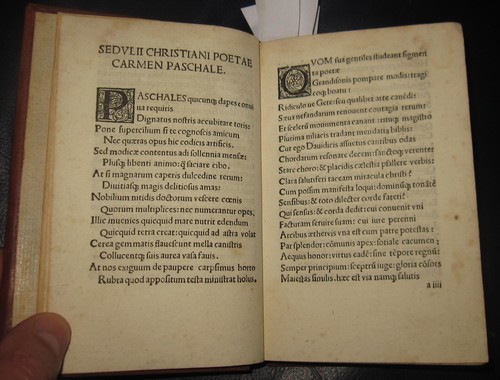 SEDVLII CHRISTIANI POETAE
CARMEN PASCHALE.
PASCHALES quicunq; dapes conui
ua requiris
Dignatus nostris accubitare toris:
Pone supercilium si te cognoscis amicum
Nec quæras opus hic codicis artificis.
Sed modicæ contentus adi sollennia mensæ:
Plusq; libenti animo: q̃ satiare cibo.
At si magnarum caperis dulcedine rerum:
Diuitiasq; magis delitiosus amas:
Nobilium nitidis doctorum vescere cœnis
Quorum multiplices: nec numerantur opes,
Illic inuenies quicquid mare nutrit edendum
Quicquid terra creat: quicquid ad astra volat
Cerea gemmatis flauescunt mella canistris
Collucentq; suis aurea vasa fauis.
At nos exiguum de paupere carpsimus horto
Rubra quod appositum testa ministrat holus.
QVOM sua gentiles studeant figmen
ta poetæ
Grandisonis pompare modis: tragi
coq; boatu:
Ridiculoue Getæ: seu qualibet arte canẽdi
Sæua nefandarum renouent contagia rerum:
Et scelerũ monumenta canant: rituq; magistro
Plurima niliacis tradant mendatia biblis:
Cur ego Dauidicis assuetus cantibus odas
Chordarum resonare decem: sanctoq; verenter
Stare choro: & placidis cælestia psallere verbis:
Clara salutiferi taceam miracula christi?
Cum possim manifesta loqui: dominũq; tonãtẽ
Sensibus: & toto dilecter corde fateri?
Qui sensus: & corda dedit: cui conuenit vno
Facturam seruire suam: cui iure perenni
Arcibus æthereis vna est cum patre potestas:
Par splendor: cõmunis apex: sotiale cacumen;
Aequus honor: virtus eadẽ: sine tẽpore regnũ:
Semper principium: sceptrũ iuge: gloria cõsors
Maiestas similis. hæc est via namq; salutis
a iiii